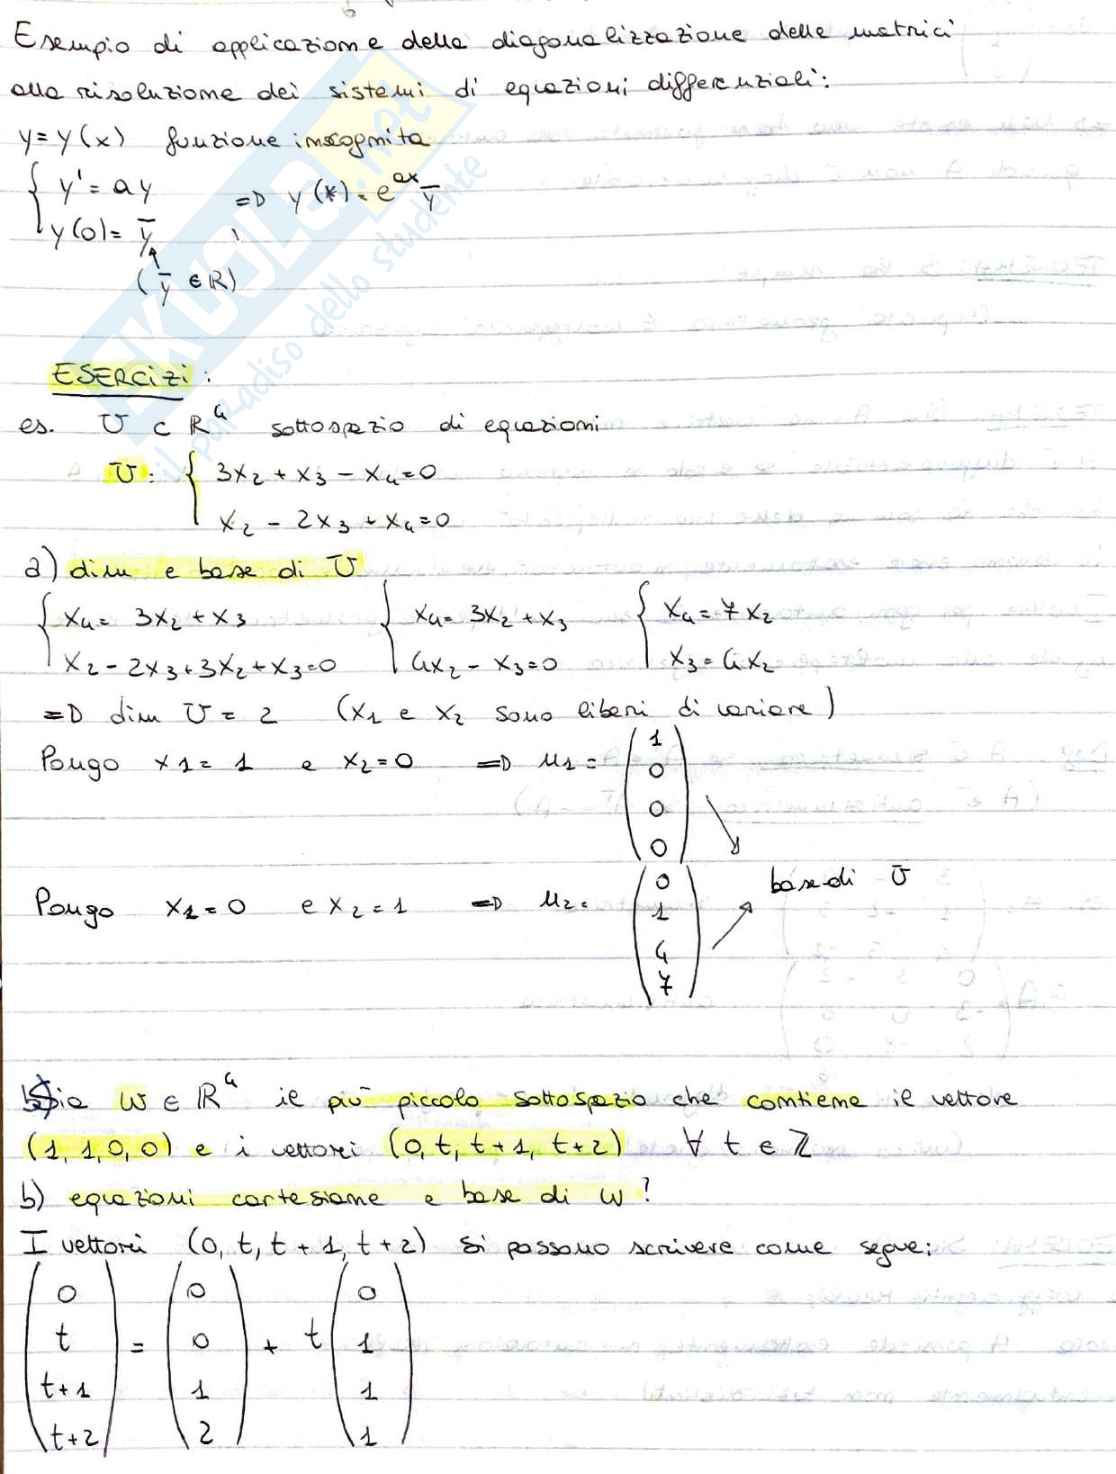 Esempio di applicazione della diagonalizzazione delle matrici
alla risoluzione dei sistemi di equazioni differenziali:
y = y(x) funzione incognita
{ y' = ay ⇒ y(x) = e^{ax} ȳ
{ y(0) = ȳ
(ȳ ∈ ℝ)
ESERCIZI:
es. U ⊂ ℝ⁴ sottospazio di equazioni
U: { 3x₂ + x₃ - x₄ = 0
{ x₂ - 2x₃ + x₄ = 0
a) dim e base di U
{ x₄ = 3x₂ + x₃ { x₄ = 3x₂ + x₃ { x₄ = 7x₂
{ x₂ - 2x₃ + 3x₂ + x₃ = 0 { 4x₂ - x₃ = 0 { x₃ = 4x₂
⇒ dim U = 2 (x₁ e x₂ sono liberi di variare)
Pongo x₁ = 1 e x₂ = 0 ⇒ u₁ = (1 0 0 0)
base di U
Pongo x₁ = 0 e x₂ = 1 ⇒ u₂ = (0 1 4 7)
Sia W ∈ ℝ⁴ il più piccolo sottospazio che contiene il vettore
(1, 1, 0, 0) e i vettori (0, t, t+1, t+2) ∀ t ∈ ℤ
b) equazioni cartesiane e base di W?
I vettori (0, t, t+1, t+2) si possono scrivere come segue:
(0 t t+1 t+2) = (0 0 1 2) + t (0 1 1 1)
SKUOLA.net
il paradiso dello studente